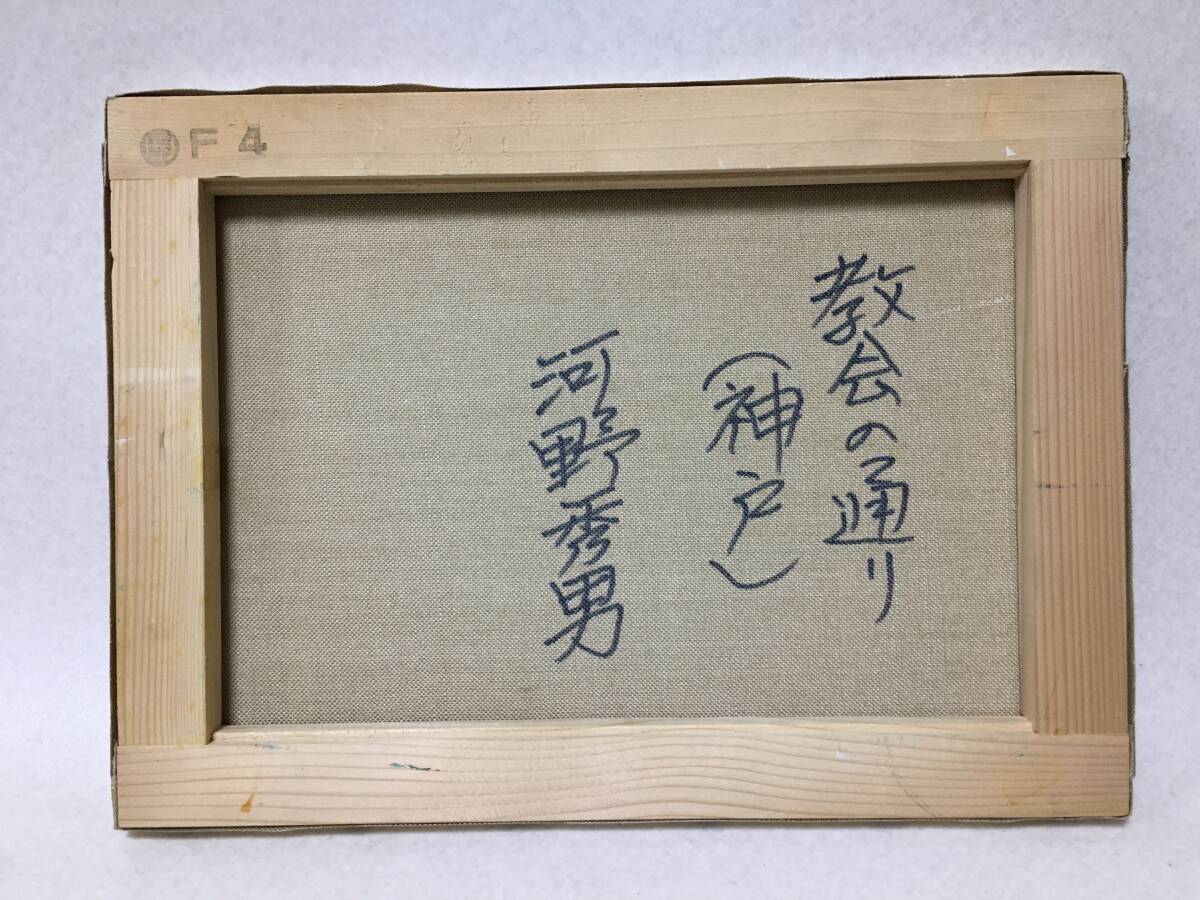 F4
教会の通り
(神戸)
河野秀男